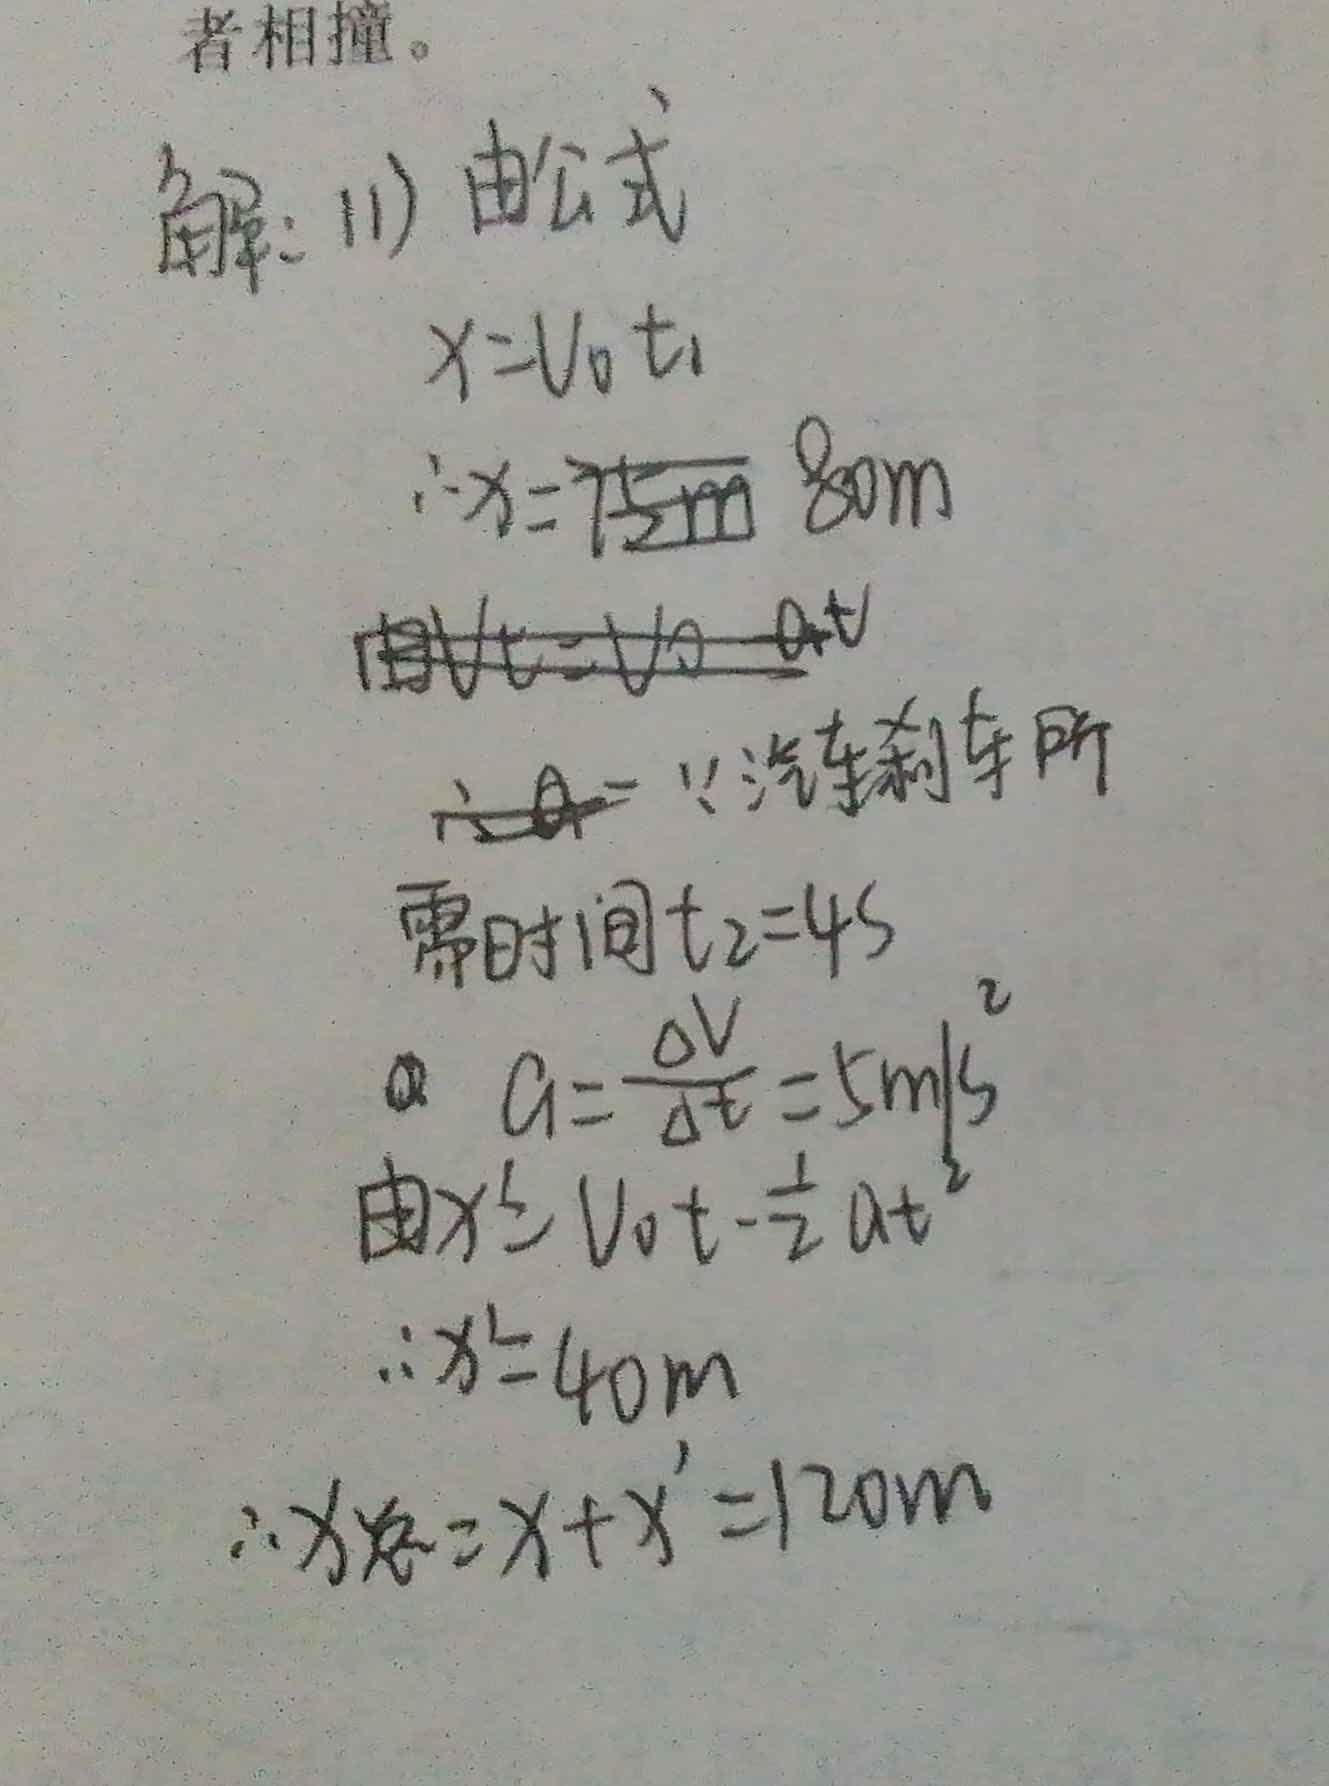 者相撞。
解:(1)由公式
x=V₀t₁
∴x=75m 80m
由Vt=V₀-at
∴a= ∵汽车刹车所
需时间t₂=4s
a a=ΔV/Δt=5m/s²
由x'=V₀t-½at²
∴x'=40m
∴x总=x+x'=120m